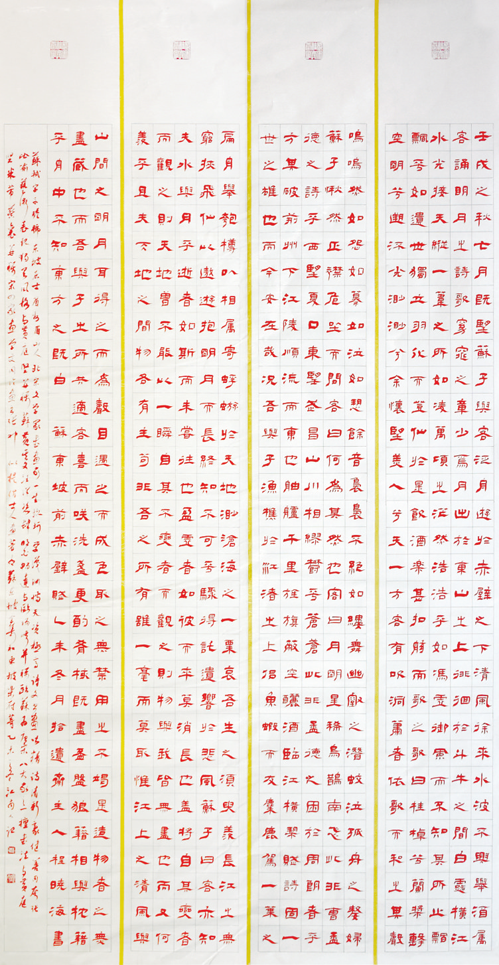 壬戌之秋七月既望蘇子與客泛舟遊於赤壁之下清風徐來水波不興舉酒屬
客誦明月之詩歌窈窕之章少焉月出於東山之上徘徊於斗牛之間白露橫江
水光接天縱一葦之所如凌萬頃之茫然浩浩乎如馮虛御風而不知其所止飄
飄乎如遺世獨立羽化而登仙於是飲酒樂甚扣舷而歌之歌曰桂棹兮蘭槳擊
空明兮泝流光渺渺兮余懷望美人兮天一方客有吹洞簫者依歌而和之其聲
嗚嗚然如怨如慕如泣如訴餘音裊裊不絕如縷舞幽壑之潛蛟泣孤舟之嫠婦
蘇子愀然正襟危坐而問客曰何為其然也客曰月明星稀烏鵲南飛此非曹孟
德之詩乎西望夏口東望武昌山川相繆鬱乎蒼蒼此非孟德之困於周郎者乎
方其破荊州下江陵順流而東也舳艫千里旌旗蔽空釃酒臨江橫槊賦詩固一
世之雄也而今安在哉況吾與子漁樵於江渚之上侶魚蝦而友麋鹿駕一葉之
扁舟舉匏樽以相屬寄蜉蝣於天地渺滄海之一粟哀吾生之須臾羨長江之無
窮挾飛仙以遨遊抱明月而長終知不可乎驟得託遺響於悲風蘇子曰客亦知
夫水與月乎逝者如斯而未嘗往也盈虛者如彼而卒莫消長也蓋將自其變者
而觀之則天地曾不能以一瞬自其不變者而觀之則物與我皆無盡也而又何
羨乎且夫天地之間物各有主苟非吾之所有雖一毫而莫取惟江上之清風與
山間之明月耳得之而為聲目遇之而成色取之無禁用之不竭是造物者之無
盡藏也而吾與子之所共適客喜而笑洗盞更酌肴核既盡杯盤狼籍相與枕籍
乎舟中不知東方之既白 蘇東坡前赤壁賦 乙未冬月拾遺齋主人程曉海書